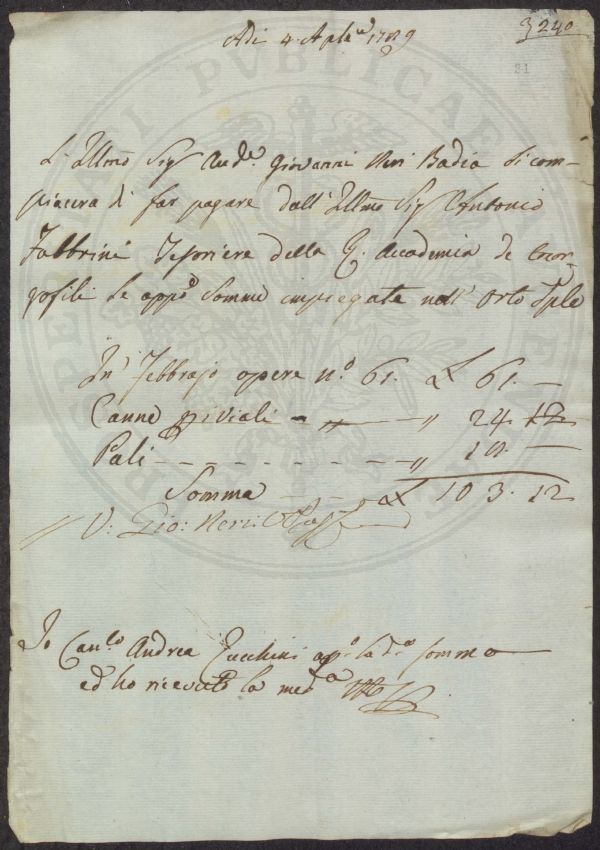 3240
Adi 4. Aple 1789
21
L'Illmo Sigr Aud.e Giovanni Neri Badia si com-
piacerà di far pagare dall'Illmo Sigr Antonio
Fabbrini Tesoriere della R. Accademia de Geor-
gofili le appo Somme impiegate nell'Orto Sple
In Febbrajo opere n.o 61. 61. —
Canne — " — " 24. 12
Pali - - - - - - - - - " 18. —
Somma - - 103. 12
V. Gio: Neri
Io Can.co Andrea Zucchini ap.o la d.a somma
ed ho ricevuto la med.a